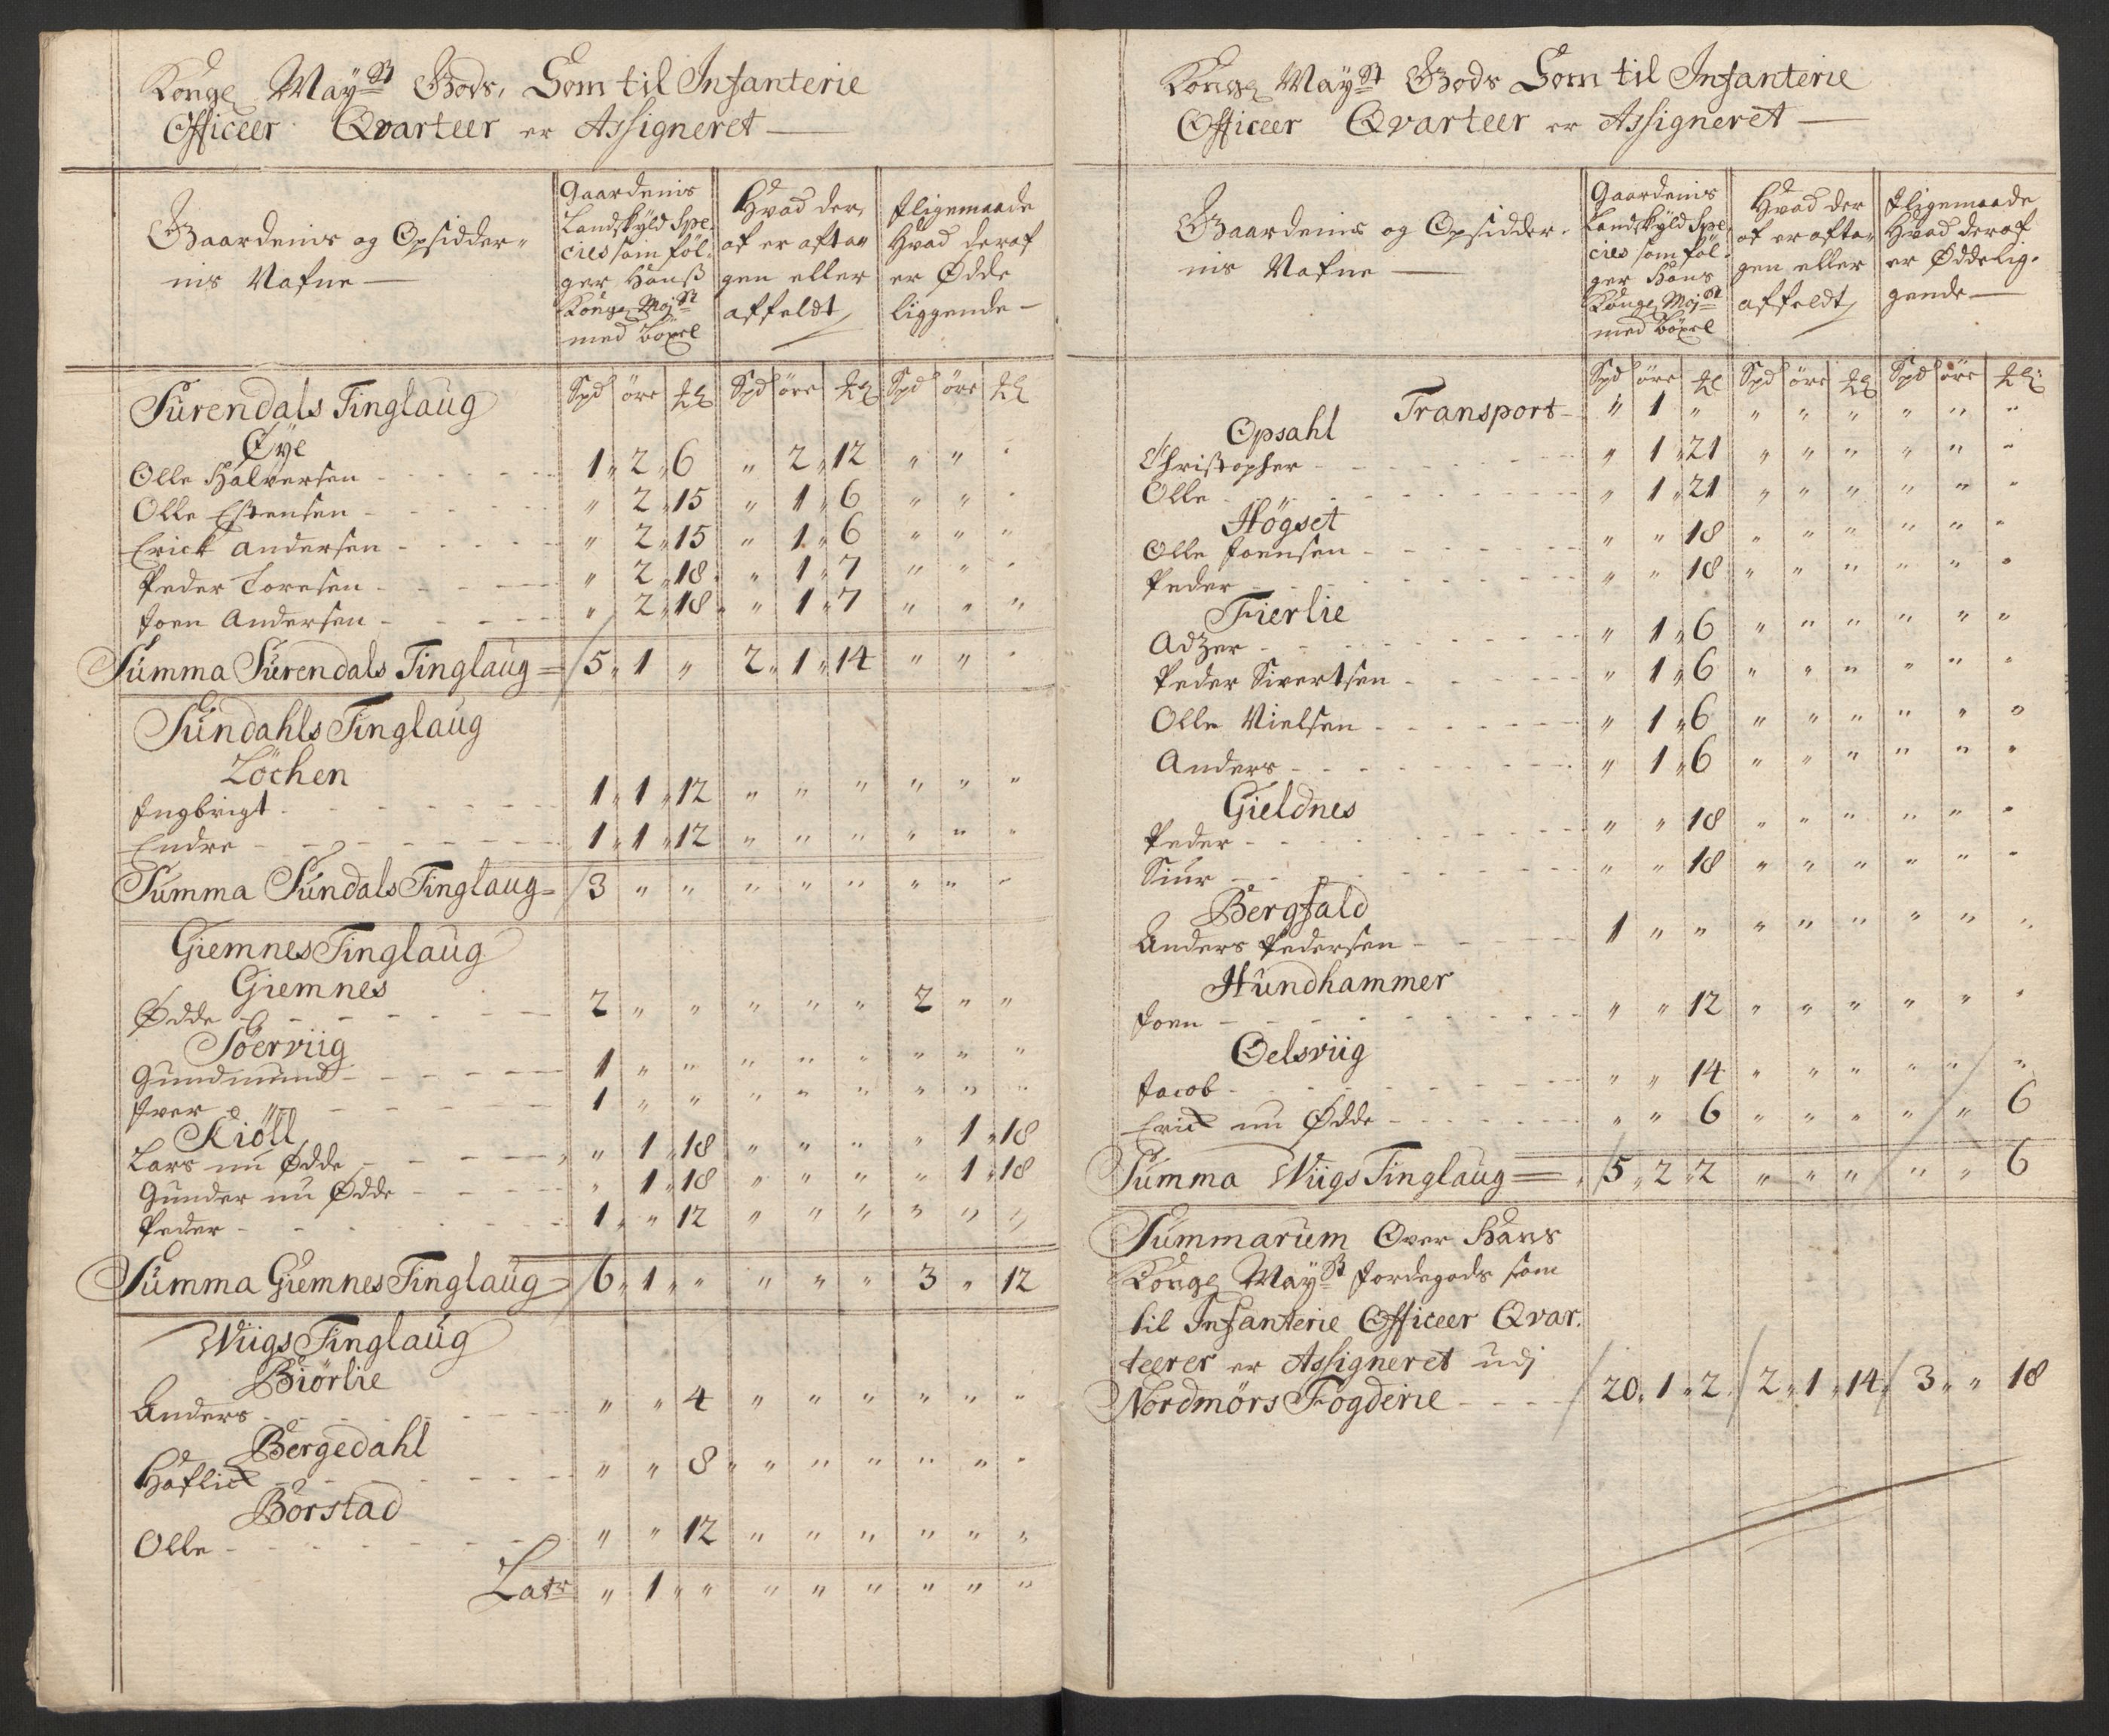 Kongl Mayst Gods, Som til Infanterie
Officeer Qvarteer er Assigneret —
Gaardenis og Opsidder-
nis Nafne —
Gaardenis
Landskyld Spe-
cies som föl-
ger Hanß
Kongl Mayst
med böxel
Hvad der
af er afta-
gen eller
affeldt
Iligemaade
Hvad deraf
er Ödde
liggende —
Spd öre ℔ Spd öre ℔ Spd öre ℔
Surendals Tinglaug
Øye
Olle Halversen - 1 „ 2 „ 6 „ 2 „ 12 „ „ „
Olle Estensen - „ 2 „ 15 „ 1 „ 6 „ „ „
Erick Andersen - „ 2 „ 15 „ 1 „ 6 „ „ „
Peder Toresen - „ 2 „ 18 „ 1 „ 7 „ „ „
Joen Andersen - „ 2 „ 18 „ 1 „ 7 „ „ „
Summa Surendals Tinglaug = 5 „ 1 „ 2 „ 1 „ 14 „ „ „
Sundahls Tinglaug
Löchen
Ingbrigt - 1 „ 1 „ 12 „ „ „ „ „ „
Endre - 1 „ 1 „ 12 „ „ „ „ „ „
Summa Sundals Tinglaug = 3 „ „ „ „ „ „ „ „
Giemnes Tinglaug
Giemnes
Ødde - 2 „ „ „ „ „ 2 „ „
Söerviig
Gundmund - 1 „ „ „ „ „ „ „ „
Iver - 1 „ „ „ „ „ „ „ „
Kiöll
Lars nu Ødde - „ 1 „ 18 „ „ „ „ 1 „ 18
Gunder nu Ødde - „ 1 „ 18 „ „ „ „ 1 „ 18
Peder - 1 „ „ 12 „ „ „ „ „ „
Summa Giemnes Tinglaug = 6 „ 1 „ „ „ „ 3 „ 12
Wiigs Tinglaug
Biörlie
Anders - „ „ 4 „ „ „ „ „ „
Bergedahl
Haflick - „ „ 8 „ „ „ „ „ „
Börstad
Olle - „ „ 12 „ „ „ „ „ „
Latr „ 1 „ „ „ „ „ „ „
Kongl Mayst Gods Som til Infanterie
Officeer Qvarteer er Assigneret —
Gaardenis og Opsidder-
nis Nafne —
Gaardenis
Landskyld Spe-
cies som föl-
ger Hans
Kongl Mayst
med böxel
Hvad der
af er afta-
gen eller
affeldt
Iligemaade
Hvad deraf
er Øddelig-
gende —
Spd öre ℔ Spd öre ℔ Spd öre ℔
Transport - „ 1 „ „ „ „ „ „ „
Opsahl
Christopher - „ 1 „ 21 „ „ „ „ „ „
Olle - „ 1 „ 21 „ „ „ „ „ „
Högset
Olle Joensen - „ „ 18 „ „ „ „ „ „
Peder - „ „ 18 „ „ „ „ „ „
Fierlie
Adzer - „ 1 „ 6 „ „ „ „ „ „
Peder Sivertsen - „ 1 „ 6 „ „ „ „ „ „
Olle Nielsen - „ 1 „ 6 „ „ „ „ „ „
Anders - „ 1 „ 6 „ „ „ „ „ „
Gieldnes
Peder - „ „ 18 „ „ „ „ „ „
Siur - „ „ 18 „ „ „ „ „ „
Bergfald
Anders Pedersen - 1 „ „ „ „ „ „ „ „
Hundhammer
Joen - „ „ 12 „ „ „ „ „ „
Oelsviig
Jacob - „ „ 14 „ „ „ „ „ „
Erick nu Ødde - „ „ 6 „ „ „ „ „ 6
Summa Wiigs Tinglaug = 5 „ 2 „ 2 „ „ „ „ „ 6
Summarum Over Hans
Kongl Mayst Jordegods som
til Infanterie Officeer Qvar-
teerer er Assigneret udj
Nordmörs Fogderie - 20 „ 1 „ 2 2 „ 1 „ 14 3 „ „ 18